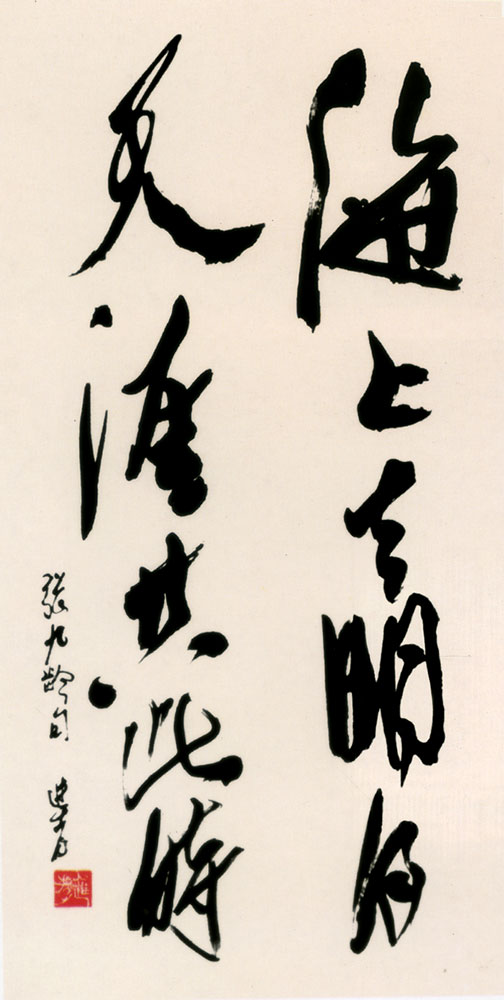 海上生明月
天涯共此時
張九齡句